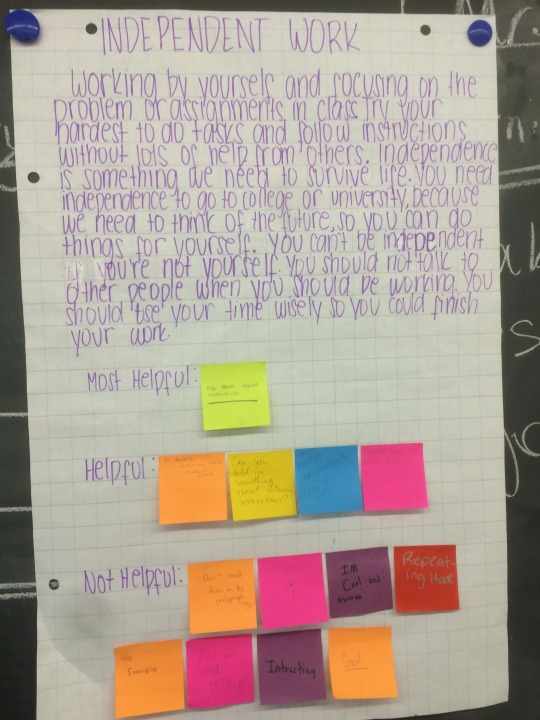 INDEPENDENT WORK
Working by yourself and focusing on the
problem or assignments in class try your
hardest to do tasks and follow instructions
without lots of help from others. Independence
is something we need to survive life. You need
independence to go to college or university, because
we need to think of the future, so you can do
things for yourself. You can't be independent
if you're not yourself. You should not talk to
other people when you should be working. You
should use your time wisely so you could finish
your work.
Most Helpful:
Helpful:
Can you
add in
something
about following
instructions
Not Helpful:
Don't need
paragraph
?
IM
Cool and
awesome
Repeat-
ing Hook
Examples
Intresting
Cool